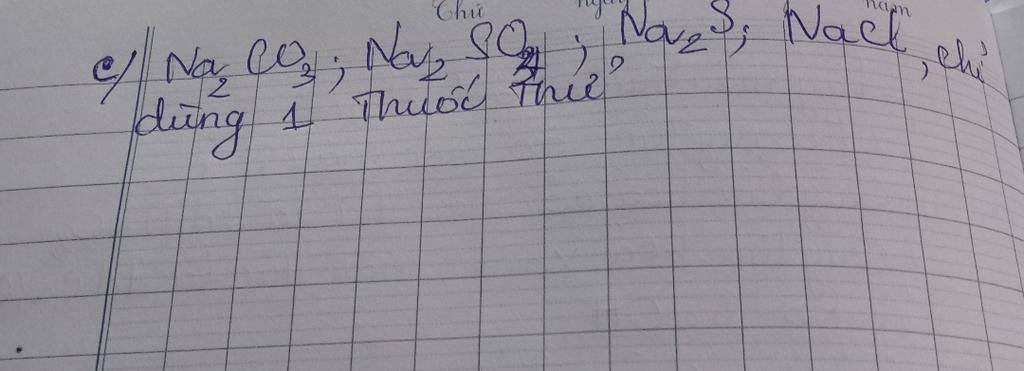 Thứ ngày năm
c/ Na₂CO₃; Na₂SO₄; Na₂S; NaCl, chỉ
dùng 1 Thuốc thử